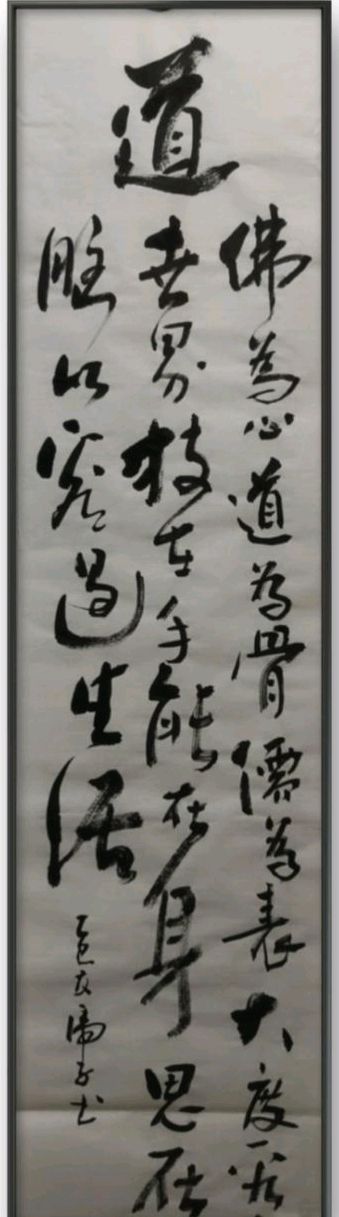 道
佛為心道為骨儒為表大度
世界技在手能在身思在
腦從容過生活